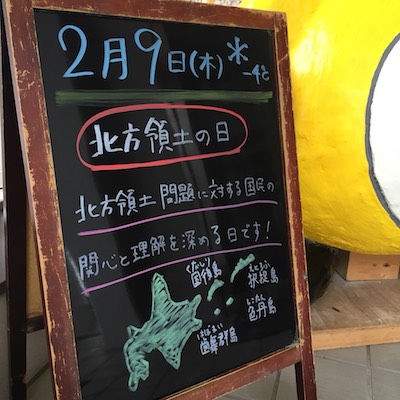 2月9日(木) -4℃
北方領土の日
北方領土問題に対する国民の
関心と理解を深める日です!
くなしり
国後島
えとろふ
択捉島
しこたん
色丹島
はぼまい
歯舞群島